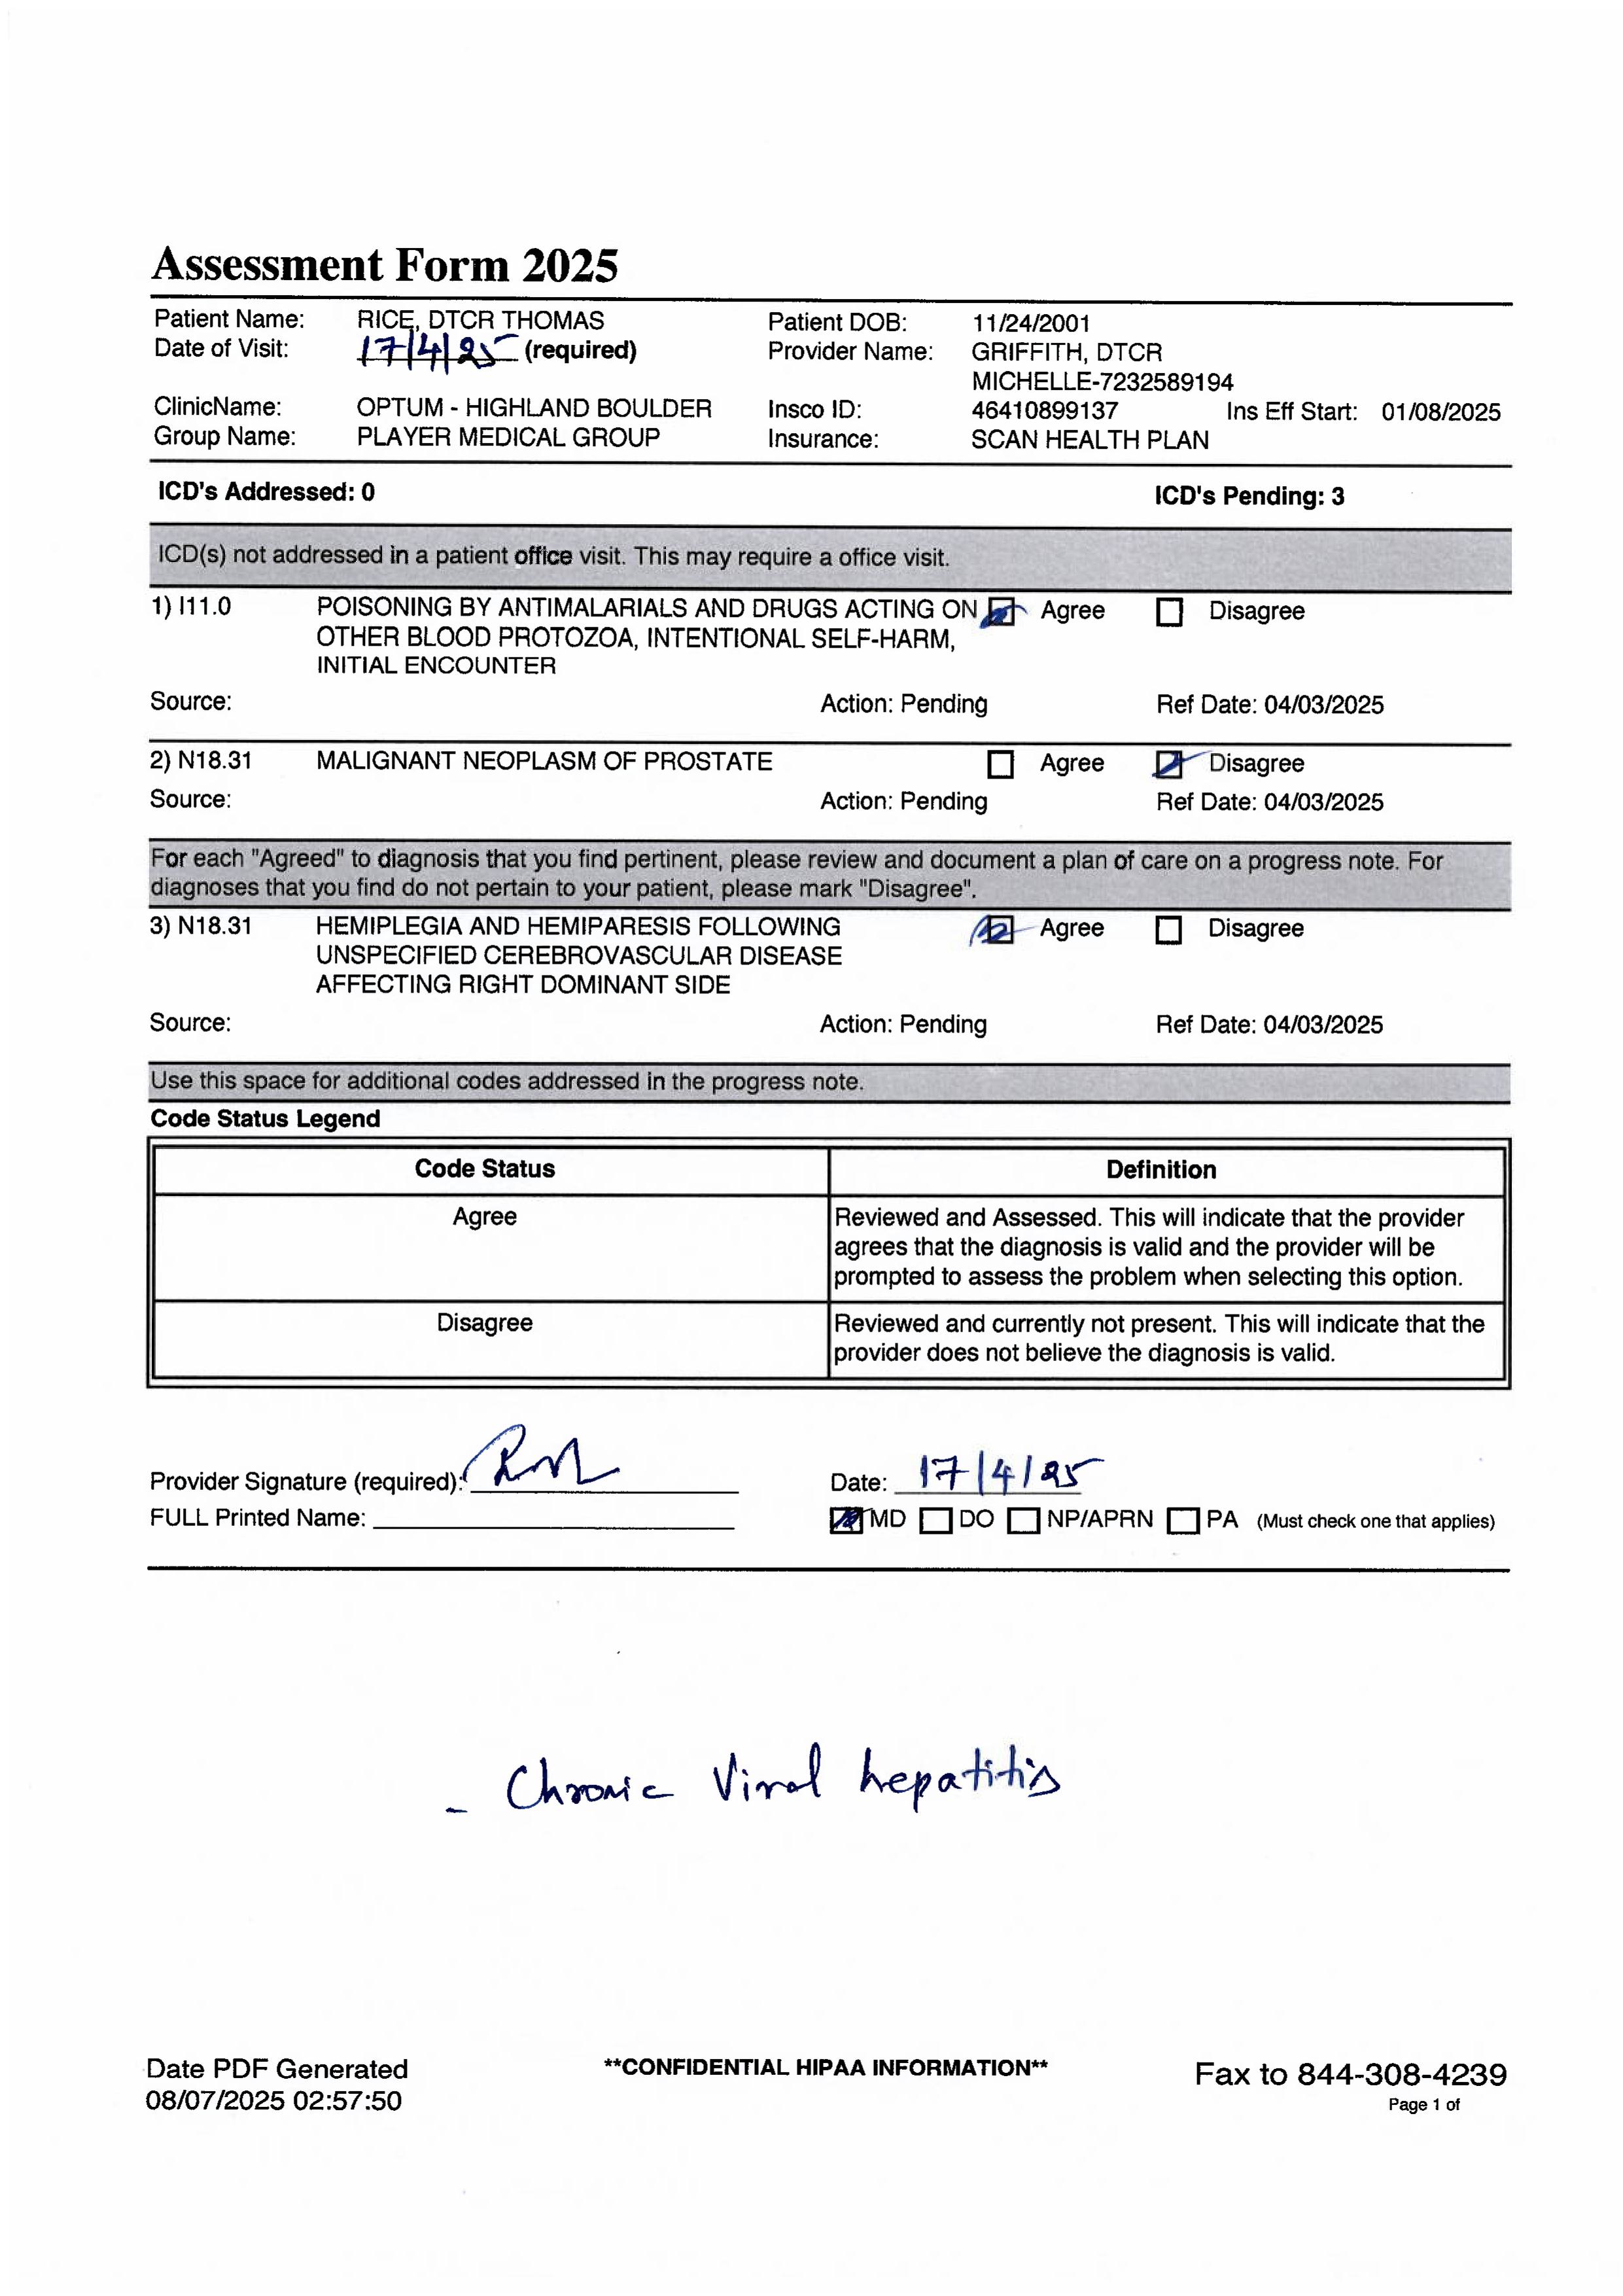 Assessment Form 2025
Patient Name: RICE, DTCR THOMAS Patient DOB: 11/24/2001
Date of Visit: 17/4/25 (required) Provider Name: GRIFFITH, DTCR
MICHELLE-7232589194
ClinicName: OPTUM - HIGHLAND BOULDER Insco ID: 46410899137 Ins Eff Start: 01/08/2025
Group Name: PLAYER MEDICAL GROUP Insurance: SCAN HEALTH PLAN
ICD's Addressed: 0 ICD's Pending: 3
ICD(s) not addressed in a patient office visit. This may require a office visit.
1) I11.0 POISONING BY ANTIMALARIALS AND DRUGS ACTING ON Agree Disagree
OTHER BLOOD PROTOZOA, INTENTIONAL SELF-HARM,
INITIAL ENCOUNTER
Source: Action: Pending Ref Date: 04/03/2025
2) N18.31 MALIGNANT NEOPLASM OF PROSTATE Agree Disagree
Source: Action: Pending Ref Date: 04/03/2025
For each "Agreed" to diagnosis that you find pertinent, please review and document a plan of care on a progress note. For
diagnoses that you find do not pertain to your patient, please mark "Disagree".
3) N18.31 HEMIPLEGIA AND HEMIPARESIS FOLLOWING Agree Disagree
UNSPECIFIED CEREBROVASCULAR DISEASE
AFFECTING RIGHT DOMINANT SIDE
Source: Action: Pending Ref Date: 04/03/2025
Use this space for additional codes addressed in the progress note.
Code Status Legend
Code Status Definition
Agree Reviewed and Assessed. This will indicate that the provider
agrees that the diagnosis is valid and the provider will be
prompted to assess the problem when selecting this option.
Disagree Reviewed and currently not present. This will indicate that the
provider does not believe the diagnosis is valid.
Provider Signature (required): Date: 17/4/25
FULL Printed Name: MD DO NP/APRN PA (Must check one that applies)
- Chronic Viral hepatitis
Date PDF Generated **CONFIDENTIAL HIPAA INFORMATION** Fax to 844-308-4239
08/07/2025 02:57:50 Page 1 of